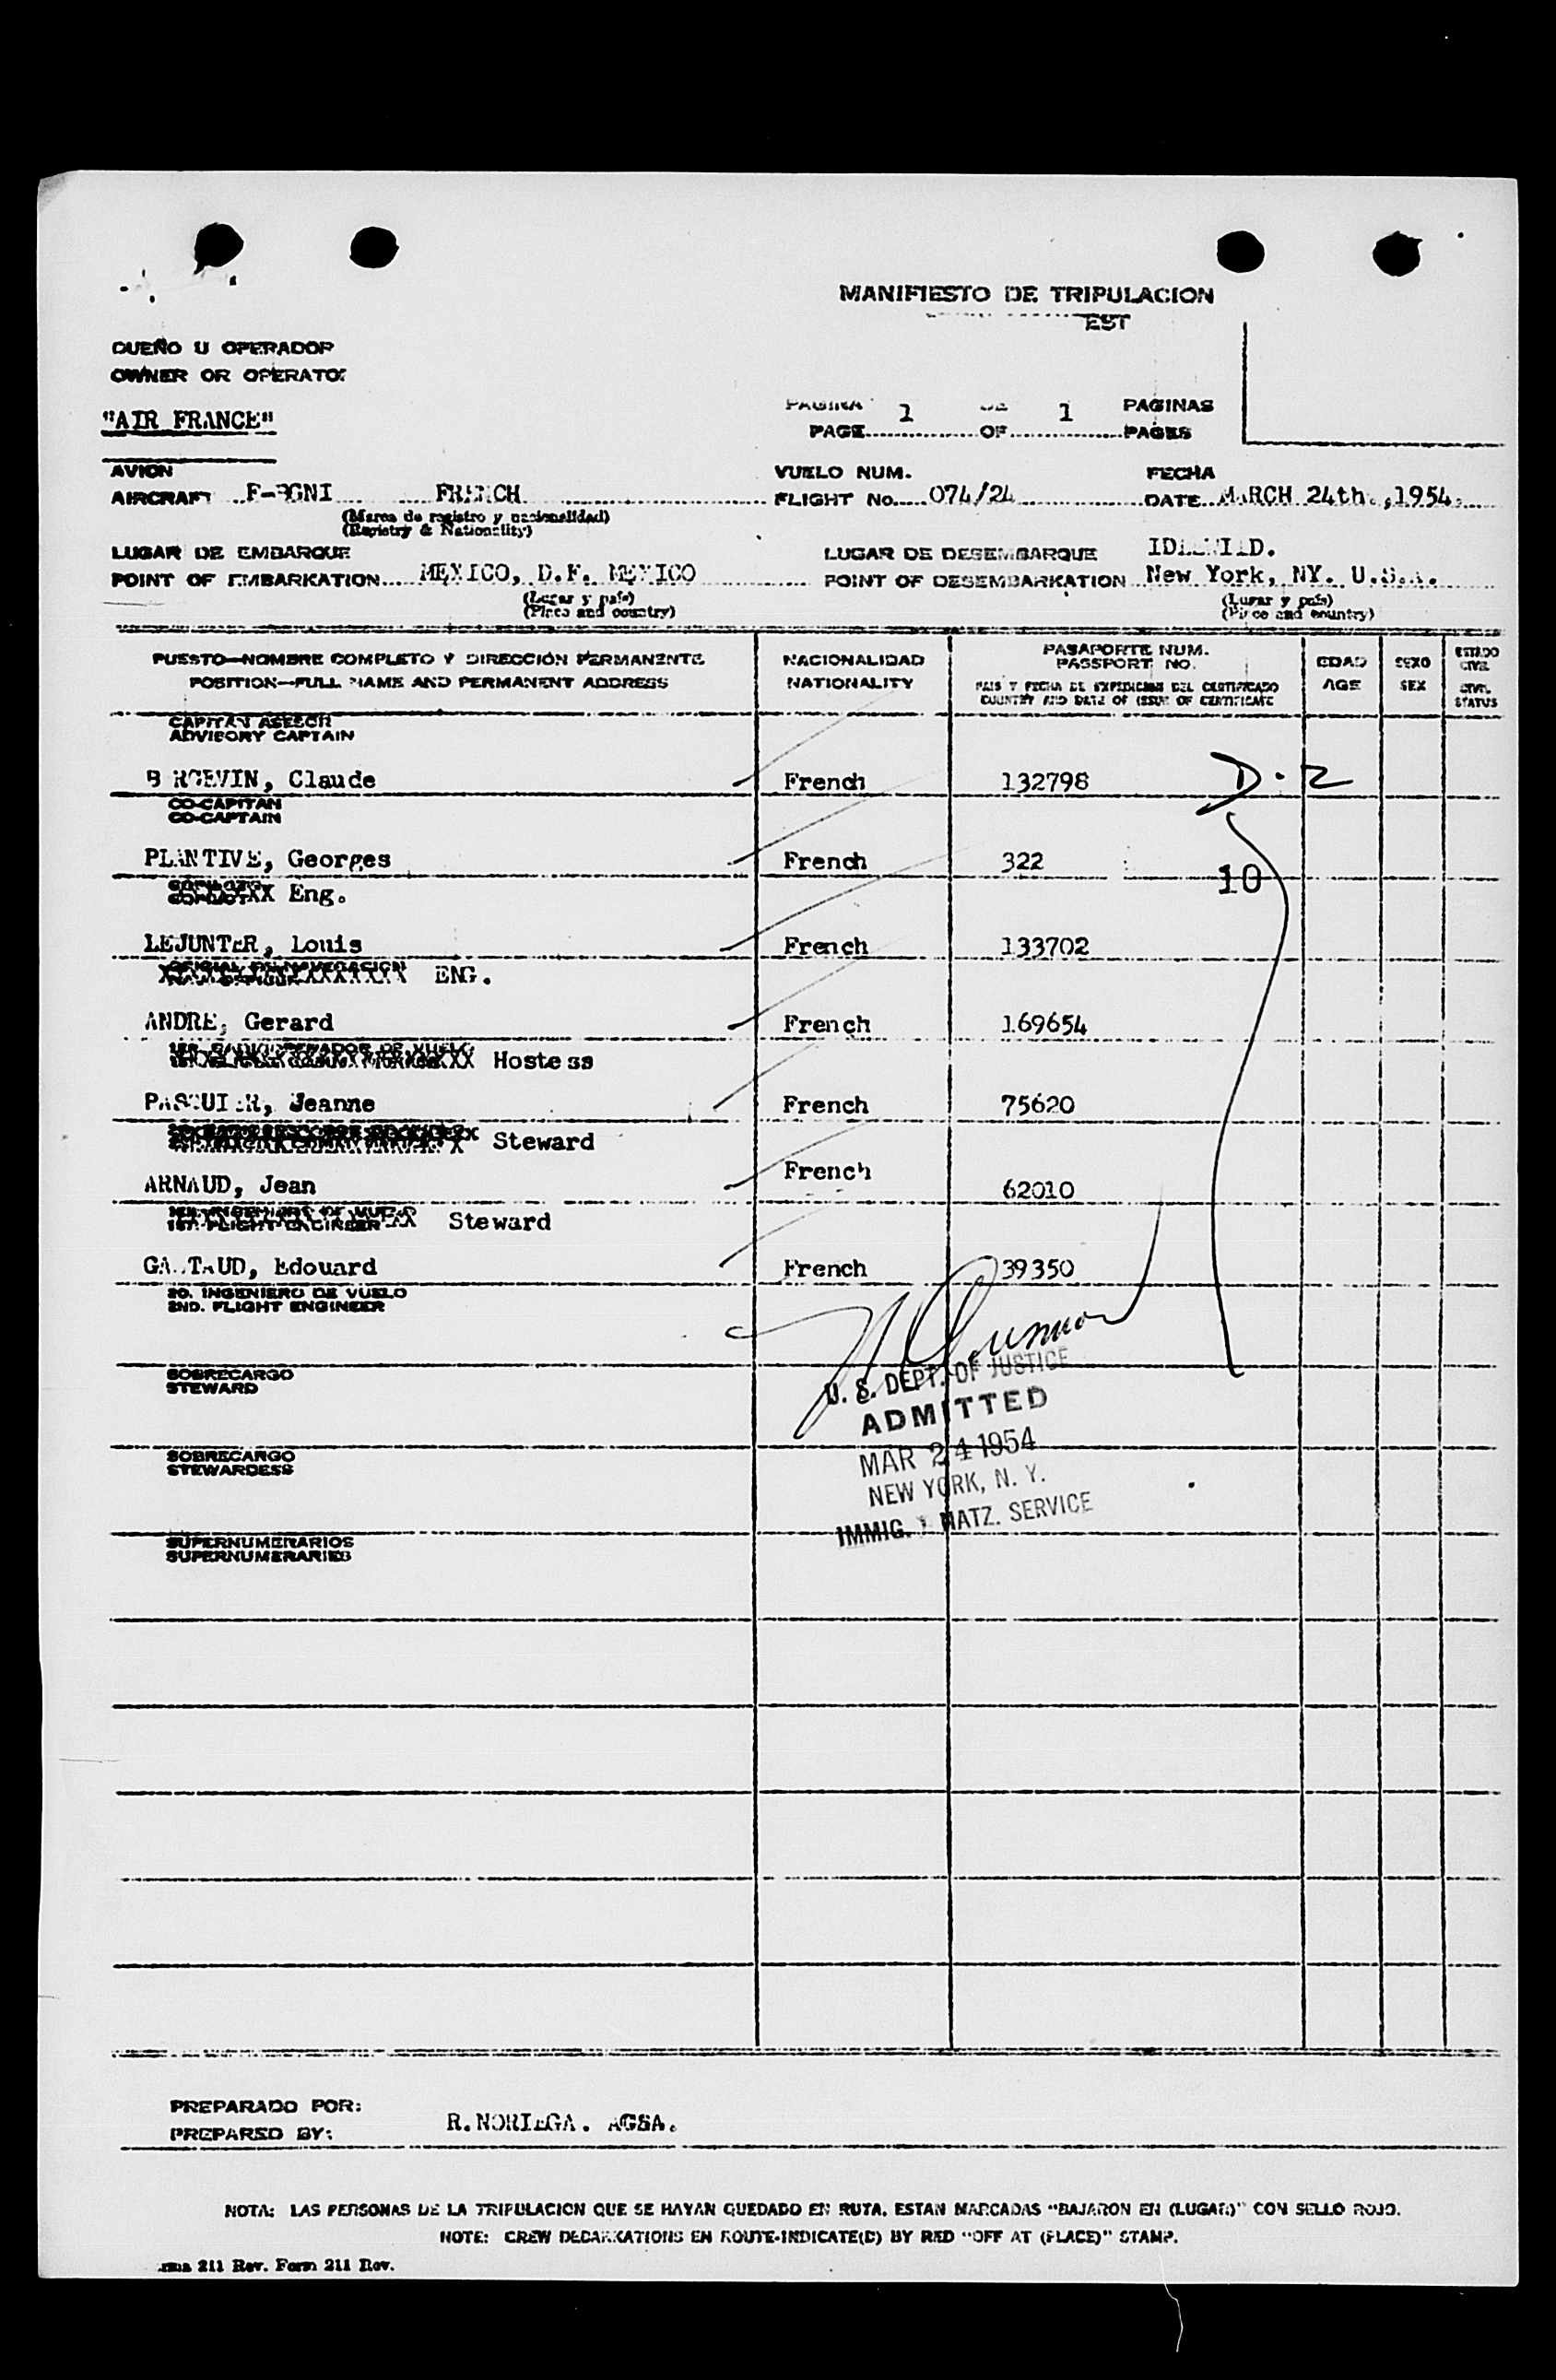 MANIFIESTO DE TRIPULACION
EST
DUEÑO U OPERADOR
OWNER OR OPERATOR
"AIR FRANCE"
PAGINA 1 DE 1 PAGINAS
PAGE OF PAGES
AVION
AIRCRAFT F-BGNI FRENCH
(Marca de registro y nacionalidad)
(Registry & Nationality)
VUELO NUM.
FLIGHT No. 074/24
FECHA
DATE MARCH 24th.,1954.
LUGAR DE EMBARQUE
POINT OF EMBARKATION MEXICO, D.F. MEXICO
(Lugar y país)
(Place and country)
LUGAR DE DESEMBARQUE
POINT OF DESEMBARKATION New York, NY. U.S.A.
(Lugar y país)
(Place and country)
PUESTO—NOMBRE COMPLETO Y DIRECCIÓN PERMANENTE
POSITION—FULL NAME AND PERMANENT ADDRESS
NACIONALIDAD
NATIONALITY
PASAPORTE NUM.
PASSPORT NO.
PAIS Y FECHA DE EXPEDICION DEL CERTIFICADO
COUNTRY AND DATE OF ISSUE OF CERTIFICATE
EDAD
AGE
SEXO
SEX
ESTADO CIVIL
CIVIL STATUS
CAPITAN ASESOR
ADVISORY CAPTAIN
Claude French 132798 D.2
CO-CAPITAN
CO-CAPTAIN
PLANTIVE, Georges French 322
10
Eng.
LEJUNTER, Louis French 133702
ENG.
ANDRE, Gerard French 169654
Hostess
PASQUIER, Jeanne French 75620
Steward
ARNAUD, Jean French 62010
1ST. FLIGHT ENGINEER Steward
Edouard French 39350
2O. INGENIERO DE VUELO
2ND. FLIGHT ENGINEER
SOBRECARGO
STEWARD
U. S. DEPT. OF JUSTICE
ADMITTED
MAR 24 1954
NEW YORK, N. Y.
IMMIG. & NATZ. SERVICE
SOBRECARGO
STEWARDESS
SUPERNUMERARIOS
SUPERNUMERARIES
PREPARADO POR:
PREPARED BY: R.NORIEGA. AGSA.
NOTA: LAS PERSONAS DE LA TRIPULACION QUE SE HAYAN QUEDADO EN RUTA, ESTAN MARCADAS "BAJARON EN (LUGAR)" CON SELLO ROJO.
NOTE: CREW DEBARKATIONS EN ROUTE-INDICATE(D) BY RED "OFF AT (PLACE)" STAMP.
211 Rev. Form 211 Rev.